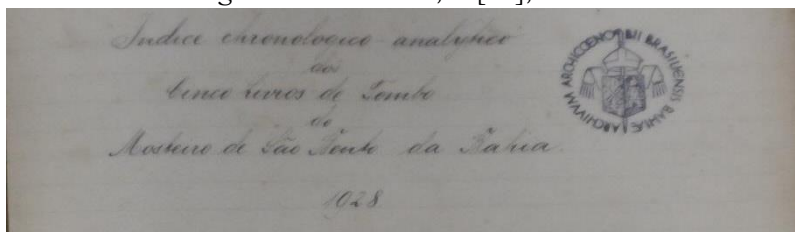 Indice chronologico analytico
aos
Cinco Livros de Tombo
do
Mosteiro de São Bento da Bahia.
1928
ARCHIVUM ARCHICOENOBII BRASILIENSIS BAHIAE